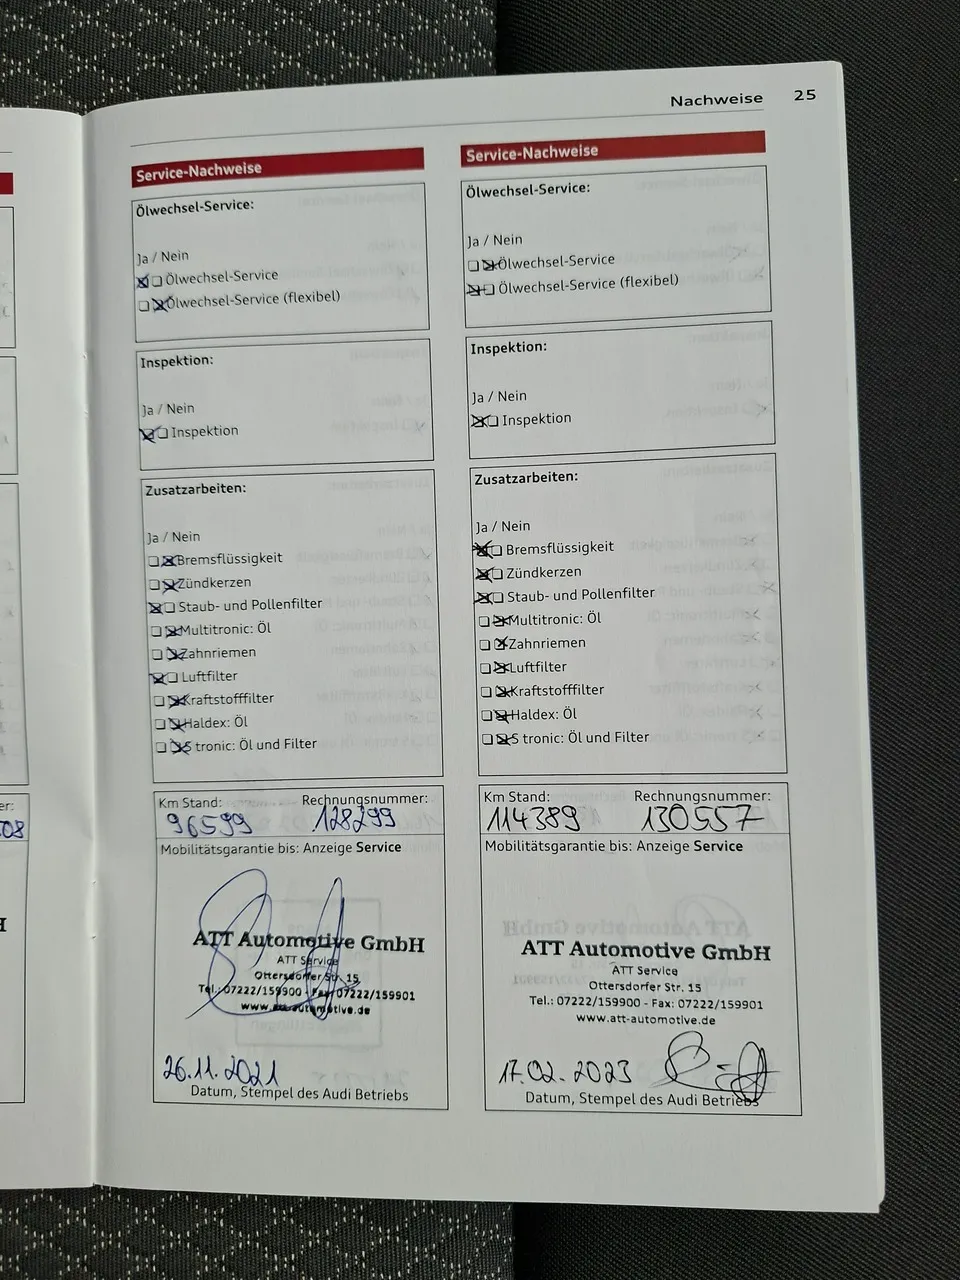 Nachweise 25
Service-Nachweise
Ölwechsel-Service:
Ja / Nein
Ölwechsel-Service
Ölwechsel-Service (flexibel)
Inspektion:
Ja / Nein
Inspektion
Zusatzarbeiten:
Ja / Nein
Bremsflüssigkeit
Zündkerzen
Staub- und Pollenfilter
Multitronic: Öl
Zahnriemen
Luftfilter
Kraftstofffilter
Haldex: Öl
S tronic: Öl und Filter
Km Stand: Rechnungsnummer:
96599 128299
Mobilitätsgarantie bis: Anzeige Service
ATT Automotive GmbH
ATT Service
Ottersdorfer Str. 15
Tel.: 07222/159900 - Fax: 07222/159901
www.att-automotive.de
26.11.2021
Datum, Stempel des Audi Betriebs
Service-Nachweise
Ölwechsel-Service:
Ja / Nein
Ölwechsel-Service
Ölwechsel-Service (flexibel)
Inspektion:
Ja / Nein
Inspektion
Zusatzarbeiten:
Ja / Nein
Bremsflüssigkeit
Zündkerzen
Staub- und Pollenfilter
Multitronic: Öl
Zahnriemen
Luftfilter
Kraftstofffilter
Haldex: Öl
S tronic: Öl und Filter
Km Stand: Rechnungsnummer:
114389 130557
Mobilitätsgarantie bis: Anzeige Service
ATT Automotive GmbH
ATT Service
Ottersdorfer Str. 15
Tel.: 07222/159900 - Fax: 07222/159901
www.att-automotive.de
17.02.2023
Datum, Stempel des Audi Betriebs